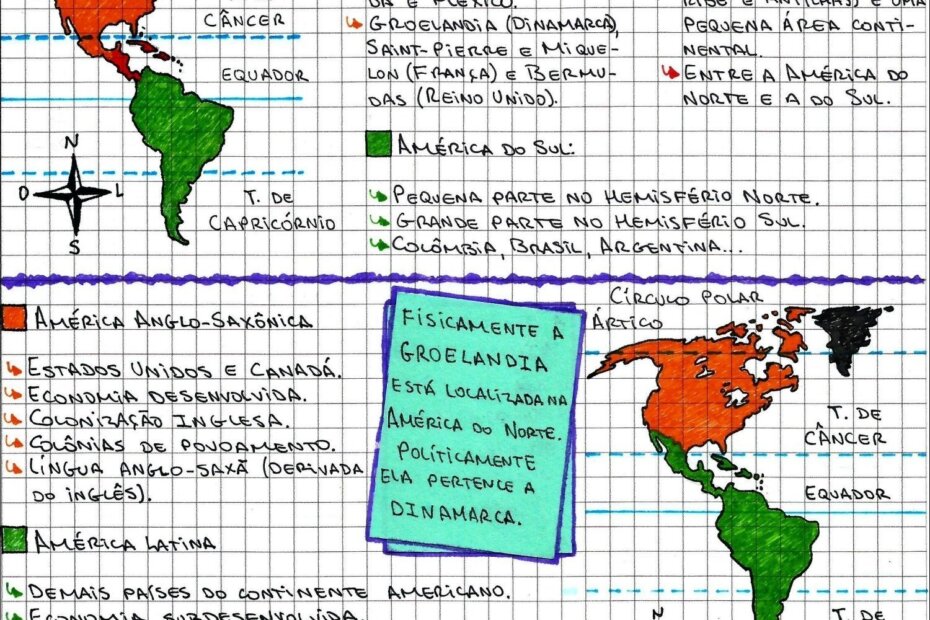 CÂNCER
EQUADOR
N
O L
S
T. DE
CAPRICÓRNIO
DA E MÉXICO.
GROELANDIA (DINAMARCA),
SAINT-PIERRE E MIQUE-
LON (FRANÇA) E BERMU-
DAS (REINO UNIDO).
E ANTILHAS) E UMA
PEQUENA ÁREA CONTI-
NENTAL.
ENTRE A AMÉRICA DO
NORTE E A DO SUL.
AMÉRICA DO SUL:
PEQUENA PARTE NO HEMISFÉRIO NORTE.
GRANDE PARTE NO HEMISFÉRIO SUL.
COLÔMBIA, BRASIL, ARGENTINA...
AMÉRICA ANGLO-SAXÔNICA
ESTADOS UNIDOS E CANADÁ.
ECONOMIA DESENVOLVIDA.
COLONIZAÇÃO INGLESA.
COLÔNIAS DE POVOAMENTO.
LÍNGUA ANGLO-SAXÃ (DERIVADA
DO INGLÊS).
AMÉRICA LATINA
DEMAIS PAÍSES DO CONTINENTE AMERICANO.
ECONOMIA SUBDESENVOLVIDA.
FISICAMENTE A
GROELANDIA
ESTÁ LOCALIZADA NA
AMÉRICA DO NORTE.
POLÍTICAMENTE
ELA PERTENCE A
DINAMARCA.
CÍRCULO POLAR
ÁRTICO
T. DE
CÂNCER
EQUADOR
N
T. DE